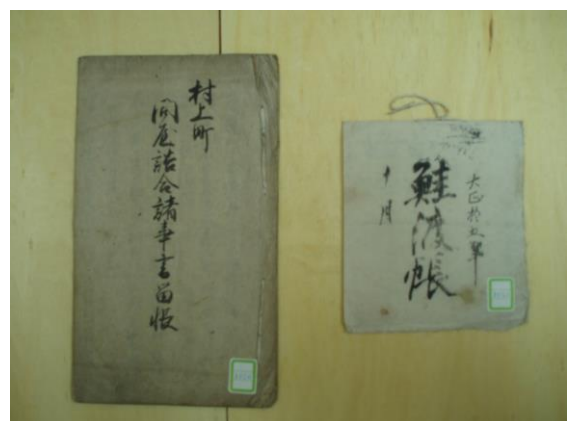 村上町
問屋詰合諸事書留帳
大正拾五年
鮭渡帳
十月